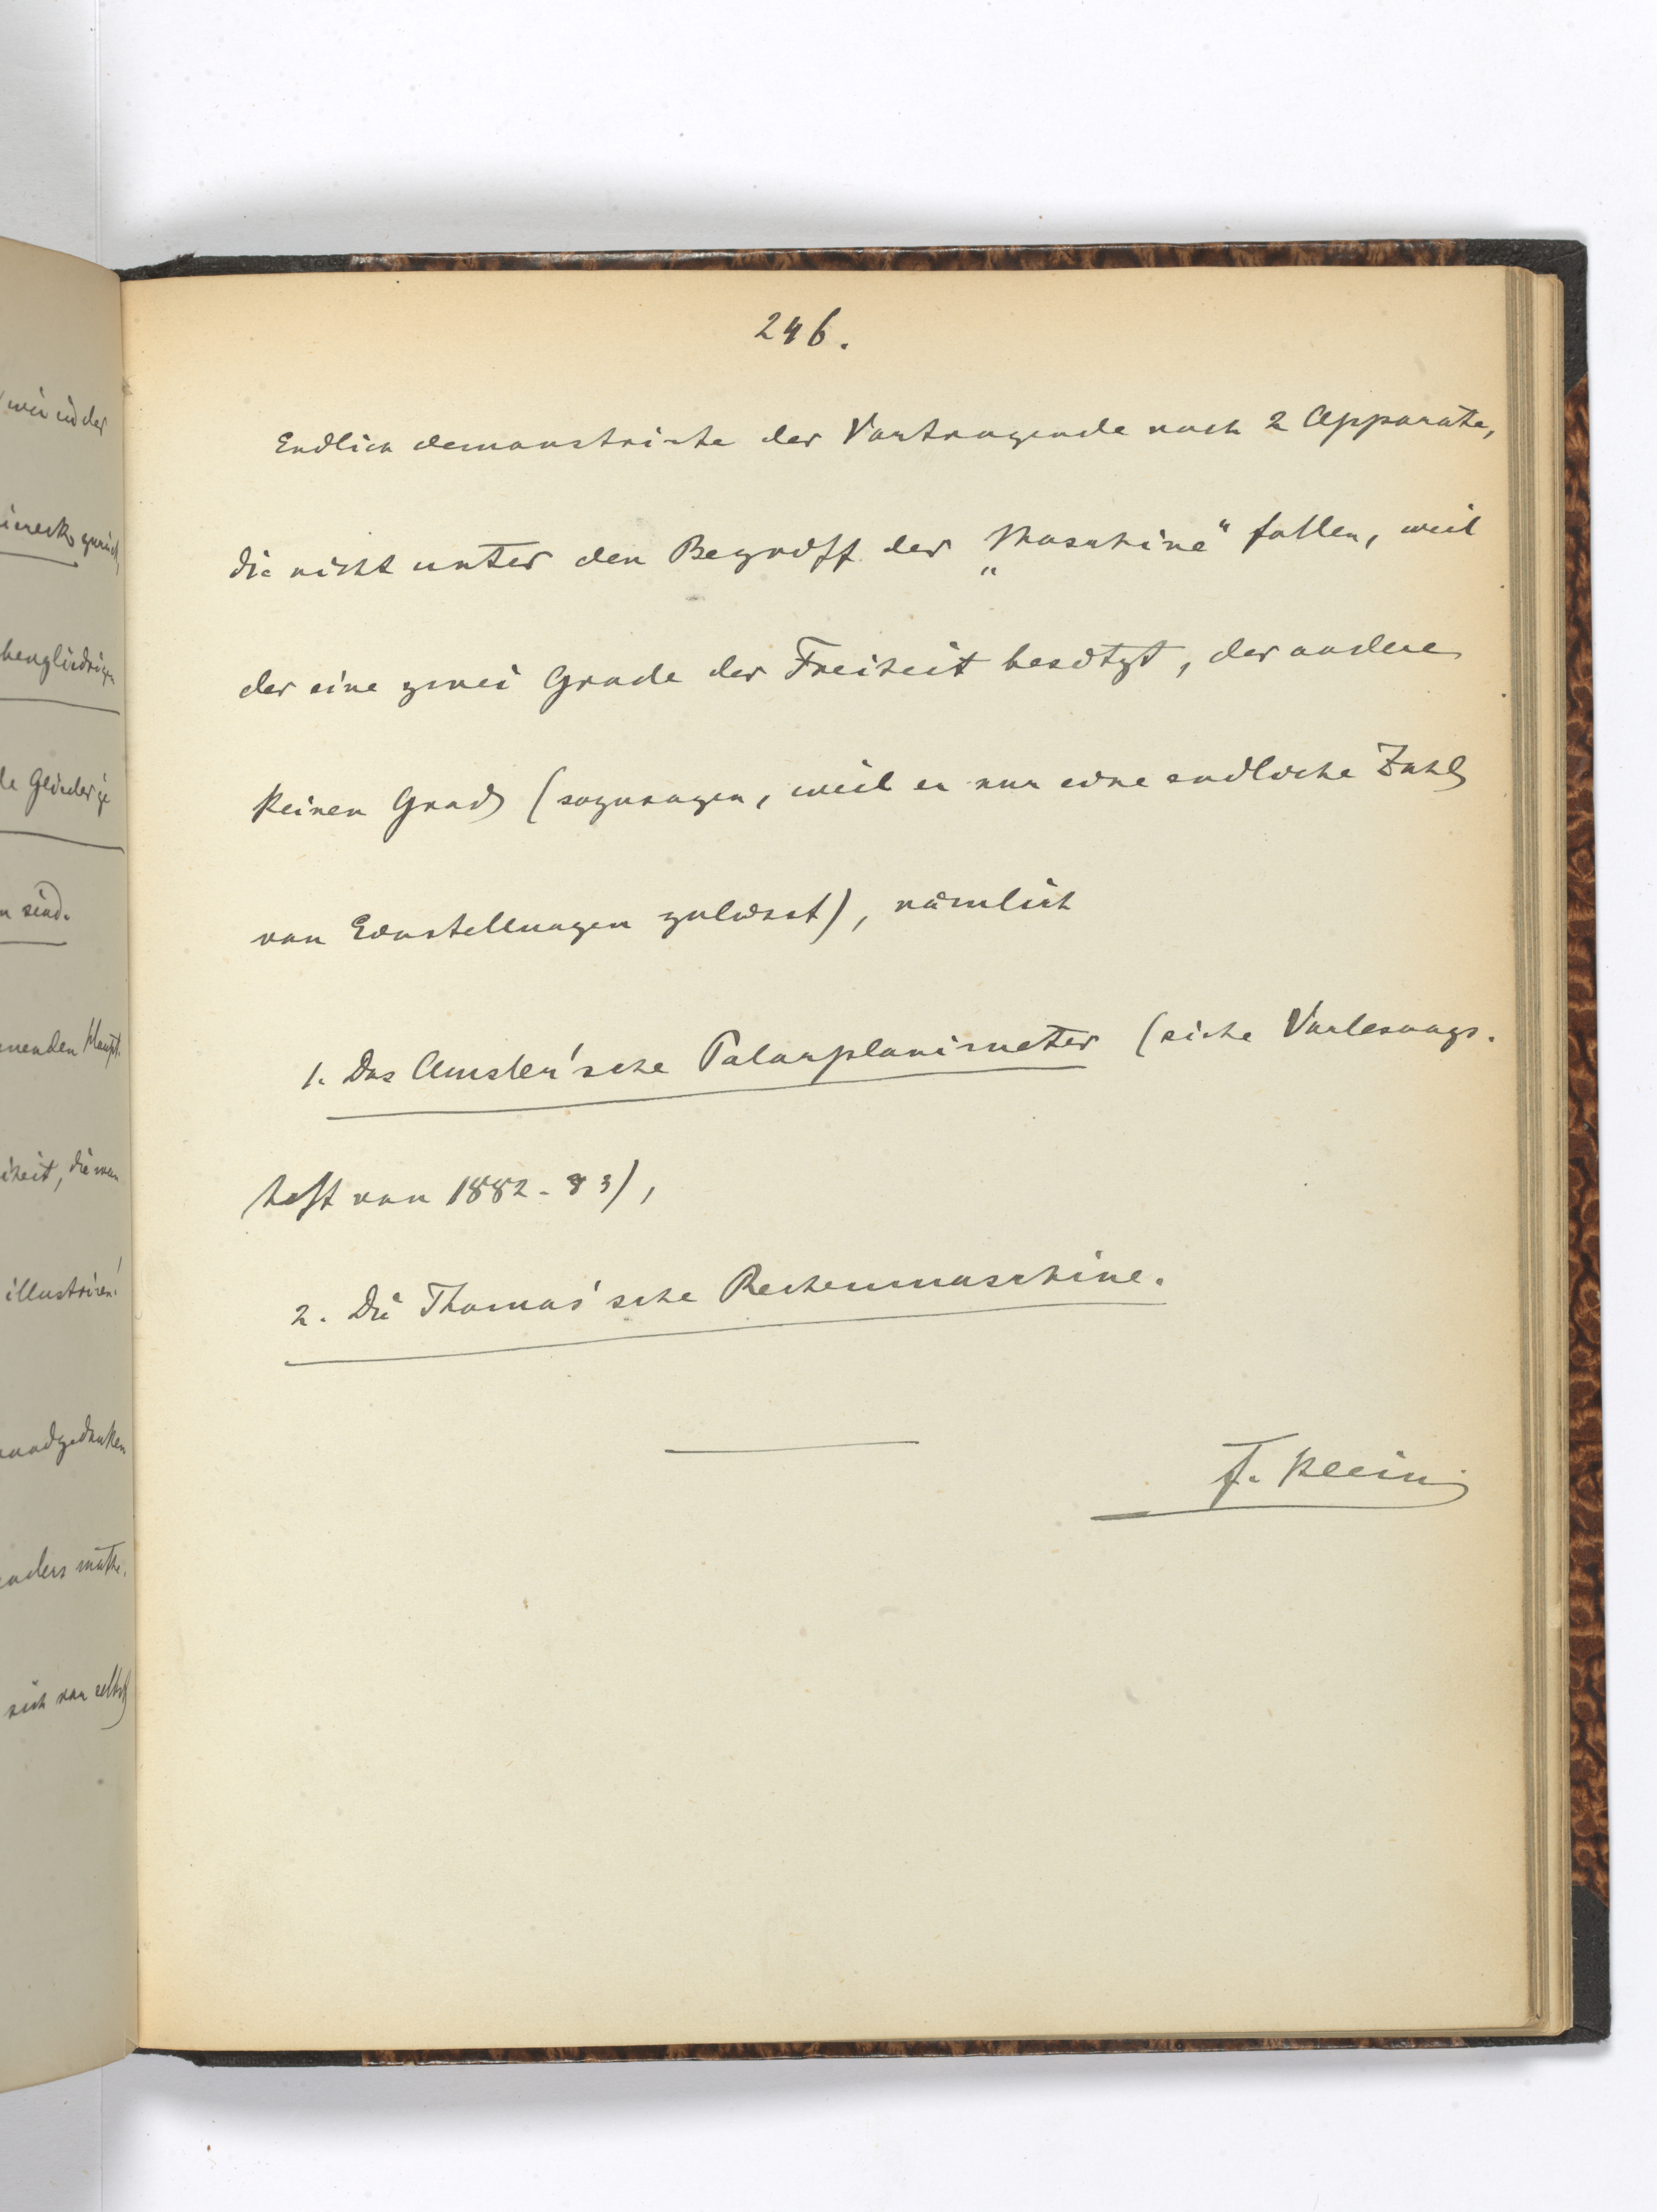 246.
Endlich demonstrirte der Vortragende noch 2 Apparate,
die nicht unter den Begriff der „Maschine“ fallen, weil
der eine zwei Grade der Freiheit besitzt, der andere
keinen Grad (sozusagen, weil er nur eine endliche Zahl
von Einstellungen zulässt), nämlich
1. Das Amsler'sche Polarplanimeter (siehe Vorlesungs-
heft von 1882-83),
2. Die Thomas'sche Rechenmaschine.
F. Klein
wir in der
zurück,
de Glieder
n sind.
Haupt-
iheit, die man
illustriren!
sich von selbst